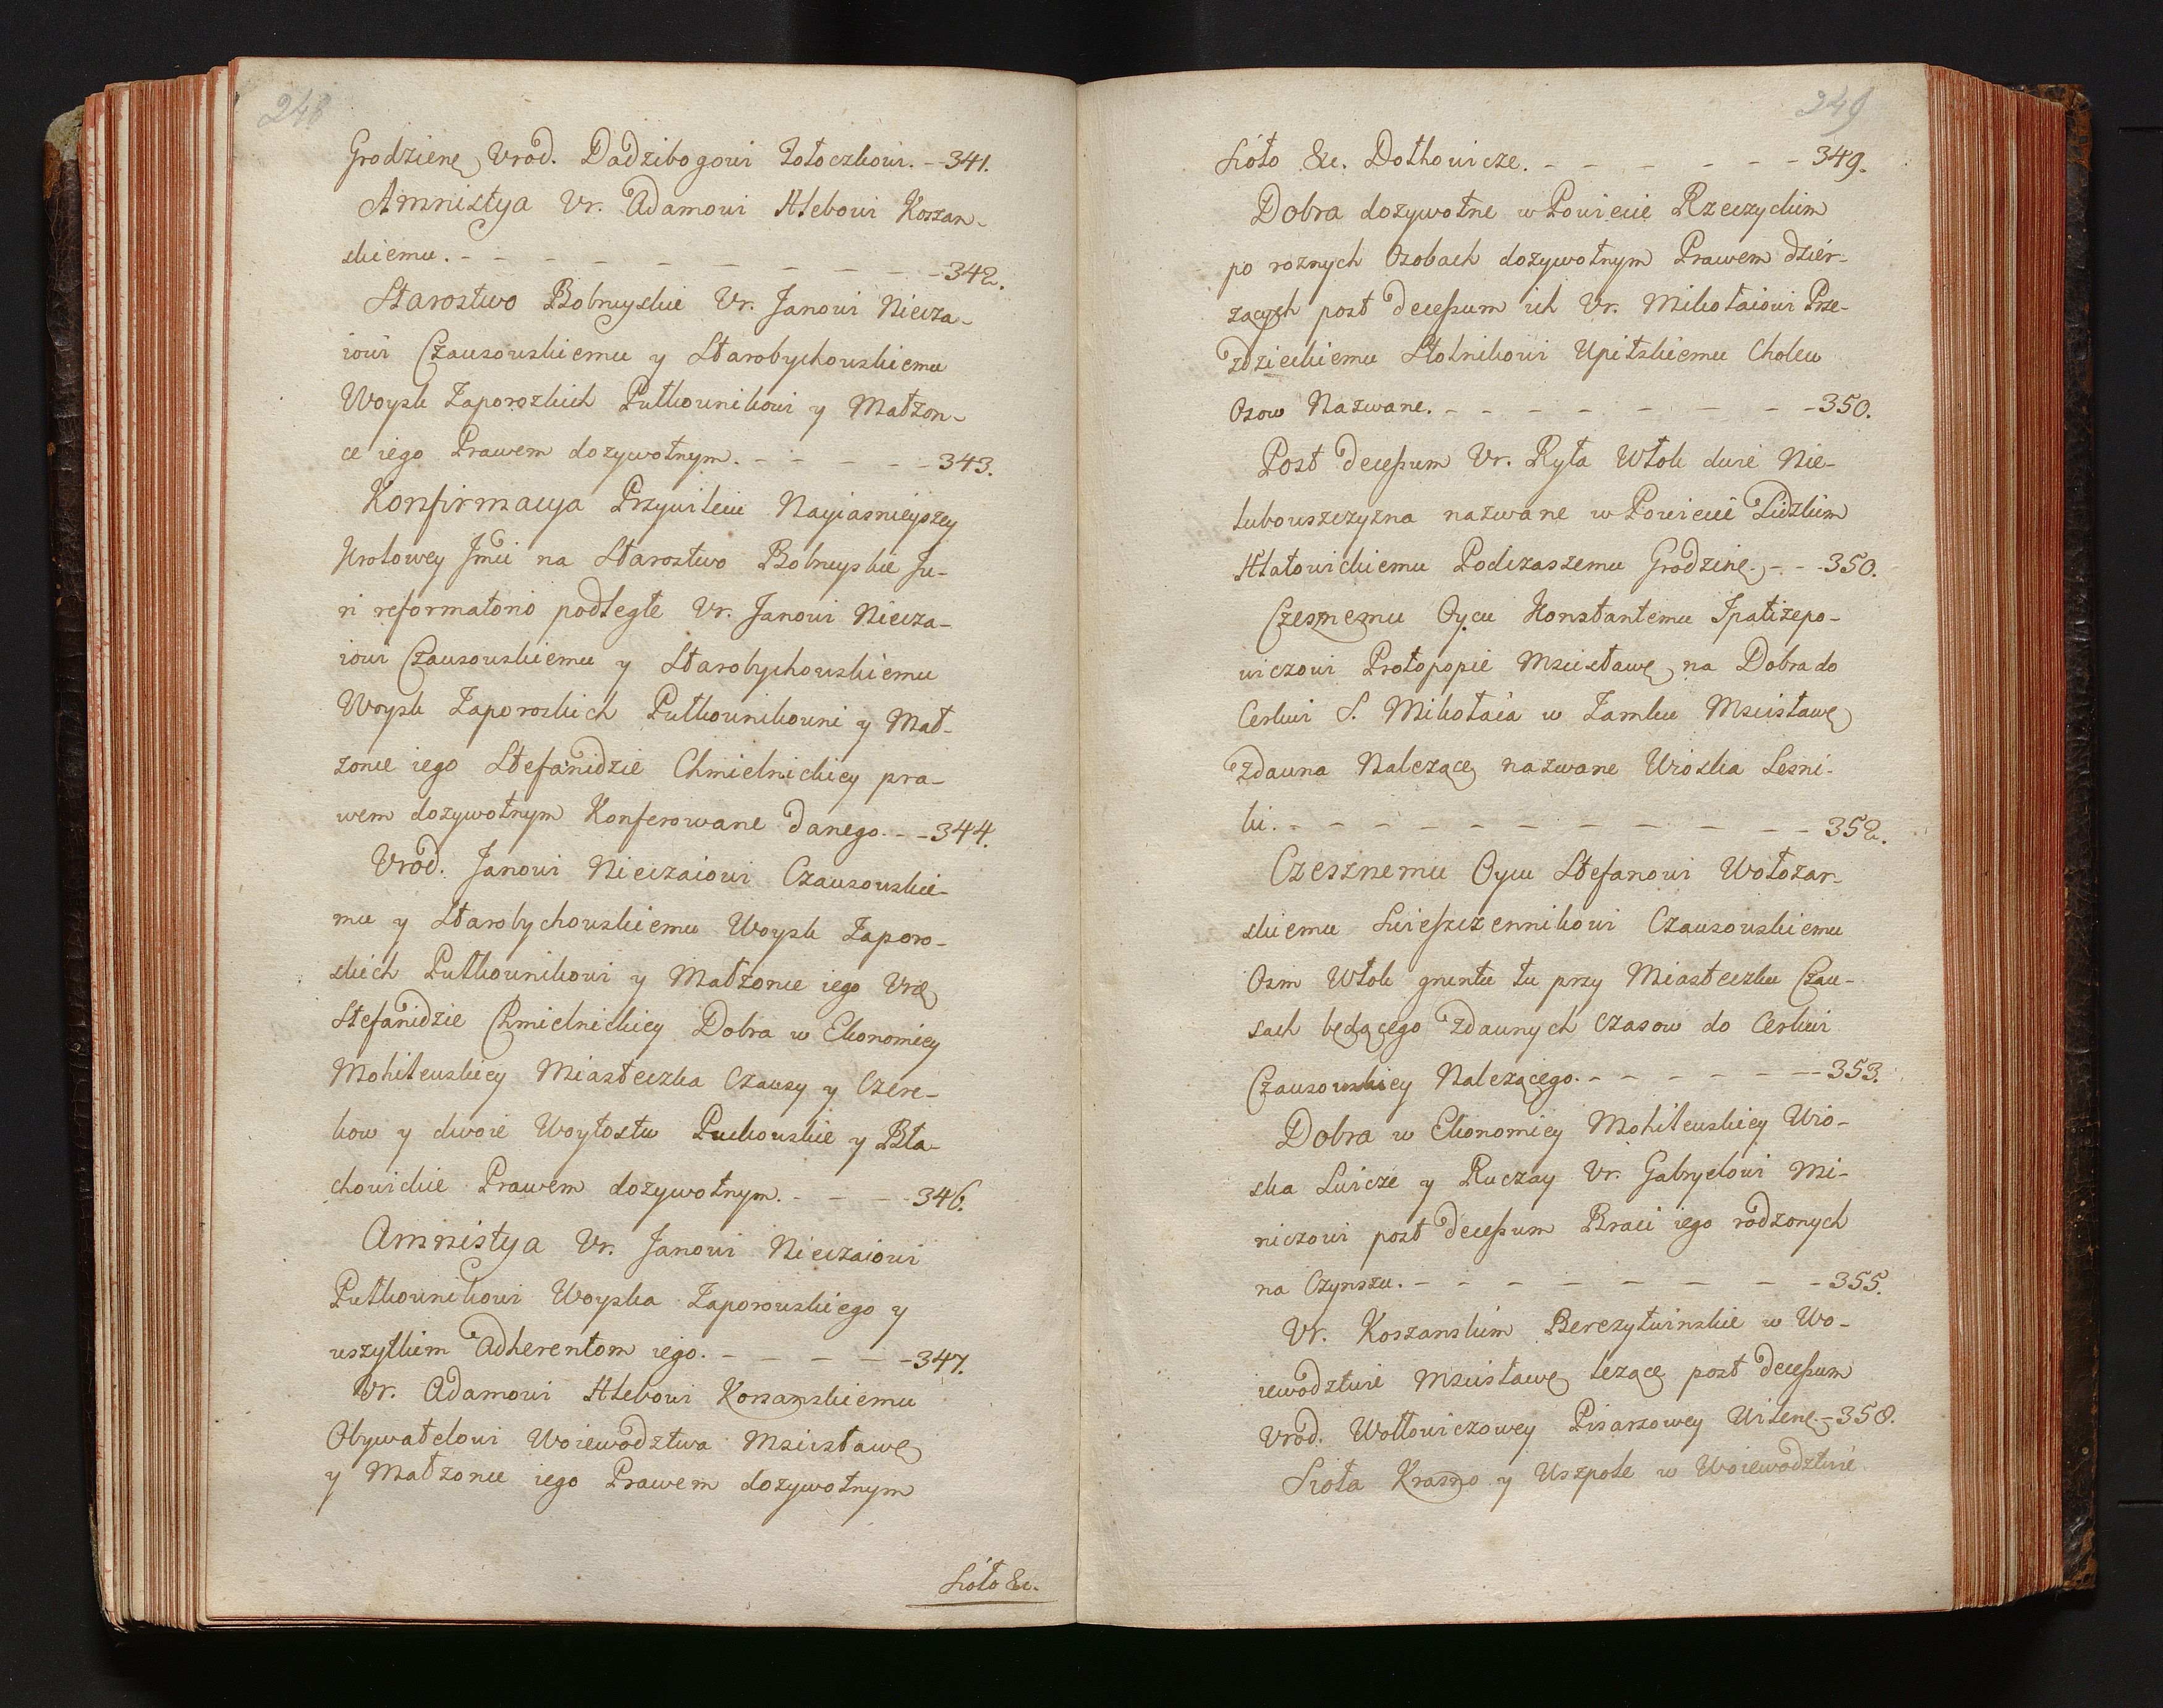 248
Grodzienę Vrod. Dadzibogowi Połoczkowi. - 341.
Amnistya Vr. Adamowi Hlebowi Koszan-
skiemu. - - - - - - - - - - 342.
Starostwo Bobruyskie Vr. Janowi Niecza-
iowi Czausouskiemu y Starobychouskiemu
Woysk Zaporozkich Pułkownikowi y Małzon-
ce iego Prawem dozywotnym. - - - - - 343.
Konfirmacya Przywileiu Nayiasnieyszey
Krolowey Jmci na Starostwo Bobruyskie Ju-
ri reformatorio podległe Vr. Janowi Niecza-
iowi Czausouskiemu y Starobychouskiemu
Woysk Zaporoskich Pułkownikowi y Mał-
zonce iego Stefanidzie Chmielnickiey pra-
wem dozywotnym Konferowane danego. - - 344.
Vrod. Janowi Nieczaiowi Czausouskie-
mu y Starobychouskiemu Woysk Zaporo-
skich Pułkownikowi y Małzonce iego Vrę
Stefanidzie Chmielnickiey Dobra w Ekonomiey
Mohileuskiey Miasteczka Czausy y Czere-
kow y dwoie Woytostw Puckouskie y Bła-
chowickie Prawem dozywotnym. - - - - 346.
Amnistya Vr. Janowi Nieczaiowi
Pułkownikowi Woyska Zaporouskiego y
wszytkiem Adherentom iego. - - - - - 347.
Vr. Adamowi Hlebowi Konsanskiemu
Obywatelowi Woiewodztwa Mscisławę
y Małzonce iego Prawem dozywotnym
Sioło &c.
249
Sioło &c. Dołhowicze. - - - - - - - 349.
Dobra dozywotne w Powiecie Rzeczyckim
po roznych Osobach dozywotnym Prawem dzier-
zących post decessum ich Vr. Mikołaiowi Prze-
zdzieckiemu Stolnikowi Upitskiemu Cholcw
Osow Nazwane. - - - - - - - - 350.
Post decessum Vr. Ryła Włok dwie Nie-
lubouszczyzna nazwane w Powiecie Lidzkim
Hłatowickiemu Podczaszemu Grodzinę. - - 350.
Czesznemu Oycu Konstantemu Ipatizepo-
wiczowi Protopopie Mscisławę na Dobra do
Cerkwi S. Mikołaia w Zamku Mscisławę
zdawna Nalezącę nazwane Wioska Lesni-
ki. - - - - - - - - - - - - 352.
Czesznemu Oycu Stefanowi Wołozan-
skiemu Swieszczennikowi Czausouskiemu
Osm Włok gruntu tu przy Miasteczku Czau-
sach będącego zdawnych czasow do Cerkwi
Czausouskiey Nalezącego. - - - - - - 353.
Dobra w Ekonomiey Mohileuskiey Wio-
ska Swicze y Ruczay Vr. Gabryelowi Mi-
niczowi post decessum Braci iego rodzonych
na Czynszu. - - - - - - - - - 355.
Vr. Koszanskim Berezytwinskie w Wo-
iewodztwie Mscisławę lezące post decessum
Vrod. Wołłowiczowey Pisarzowey Wilenę. - 358.
Sioła Krasno y Uszpole w Woiewodztwie